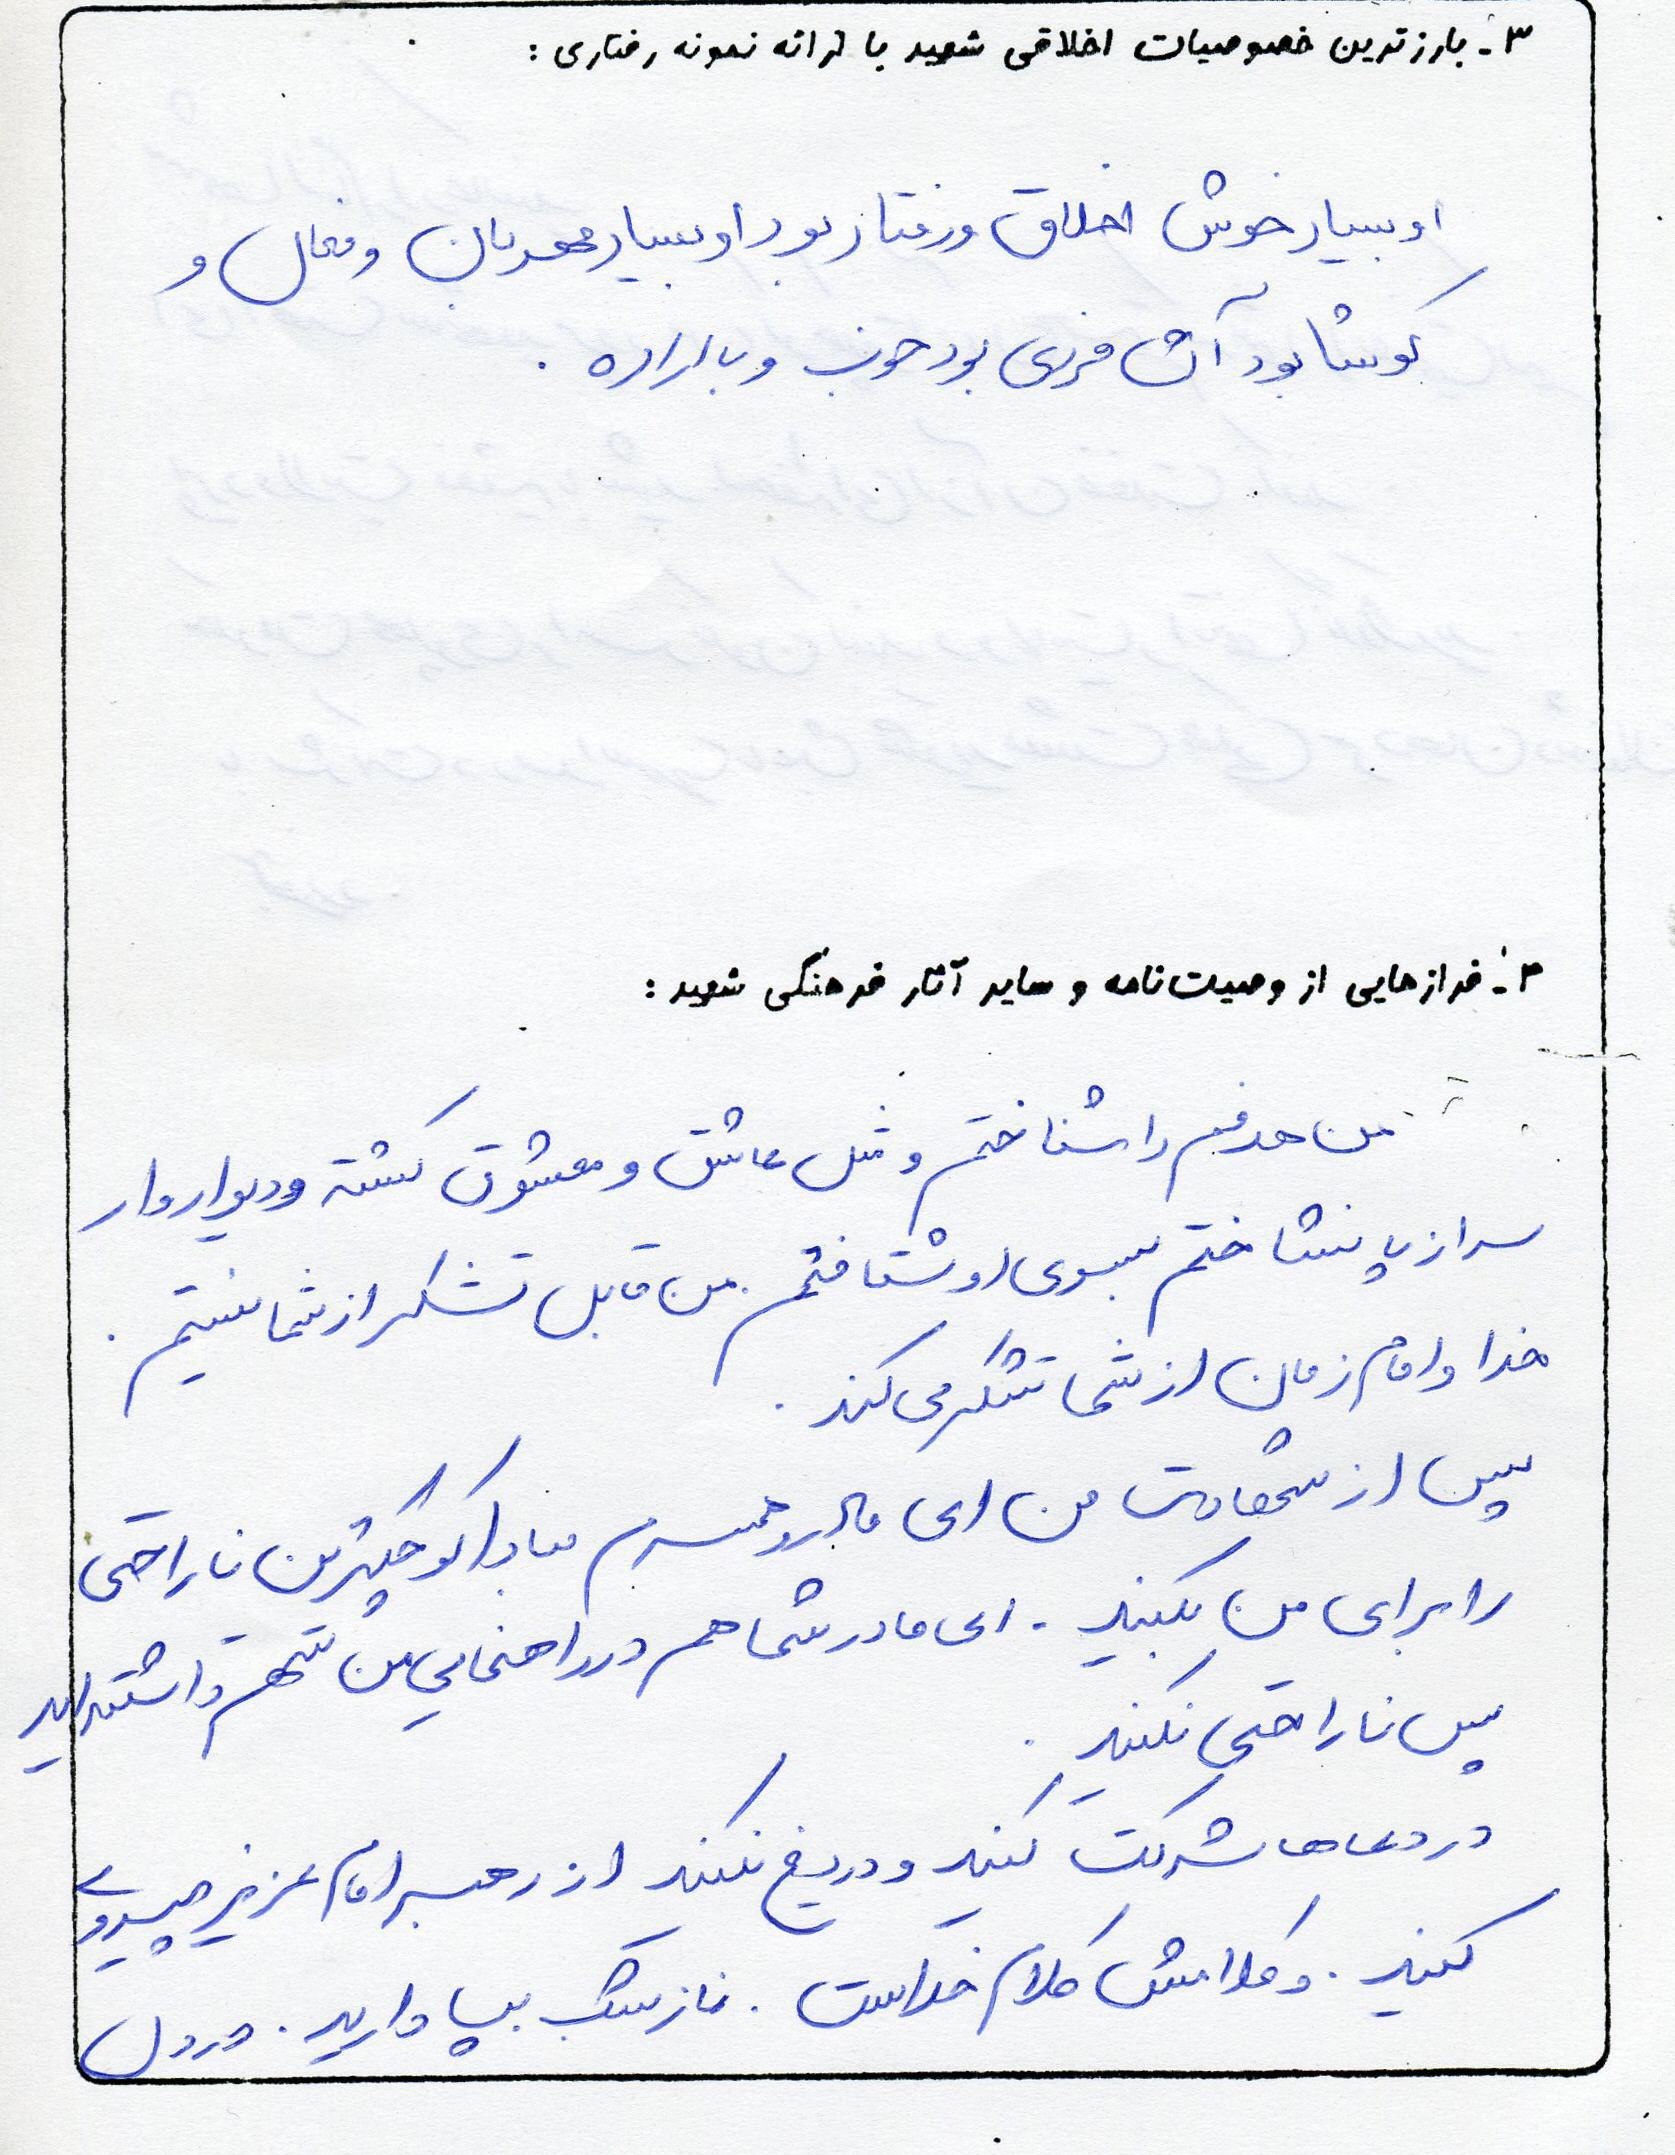 ۳- بارزترین خصوصیات اخلاقی شهید با ارائه نمونه رفتاری :
او بسیار خوش اخلاق ورفتار بود او بسیار مهربان و فعال و
کوشا بود آن فردی بود خوب و با اراده .
۴- فرازهایی از وصیت‌نامه و سایر آثار فرهنگی شهید :
من هدفم را شناختم و مثل عاشق و معشوق گشته و دیوار وار
سر از پا نشناختم بسوی او شتافتم . من قابل تشکر از شما نیستم .
خدا و امام زمان از شما تشکر می کند .
پس از شهادت من ای مادر و همسرم مبادا کوچکترین ناراحتی
را برای من بکنید . ای مادر شما هم در راهنمایی من سهم داشته‌اید
پس ناراحتی نکنید .
در دعاها شرکت کنید و دریغ نکنید از رهبر امام عزیز پیروی
کنید . و کلامش کلام خداست . نماز شب بپا دارید . در دل